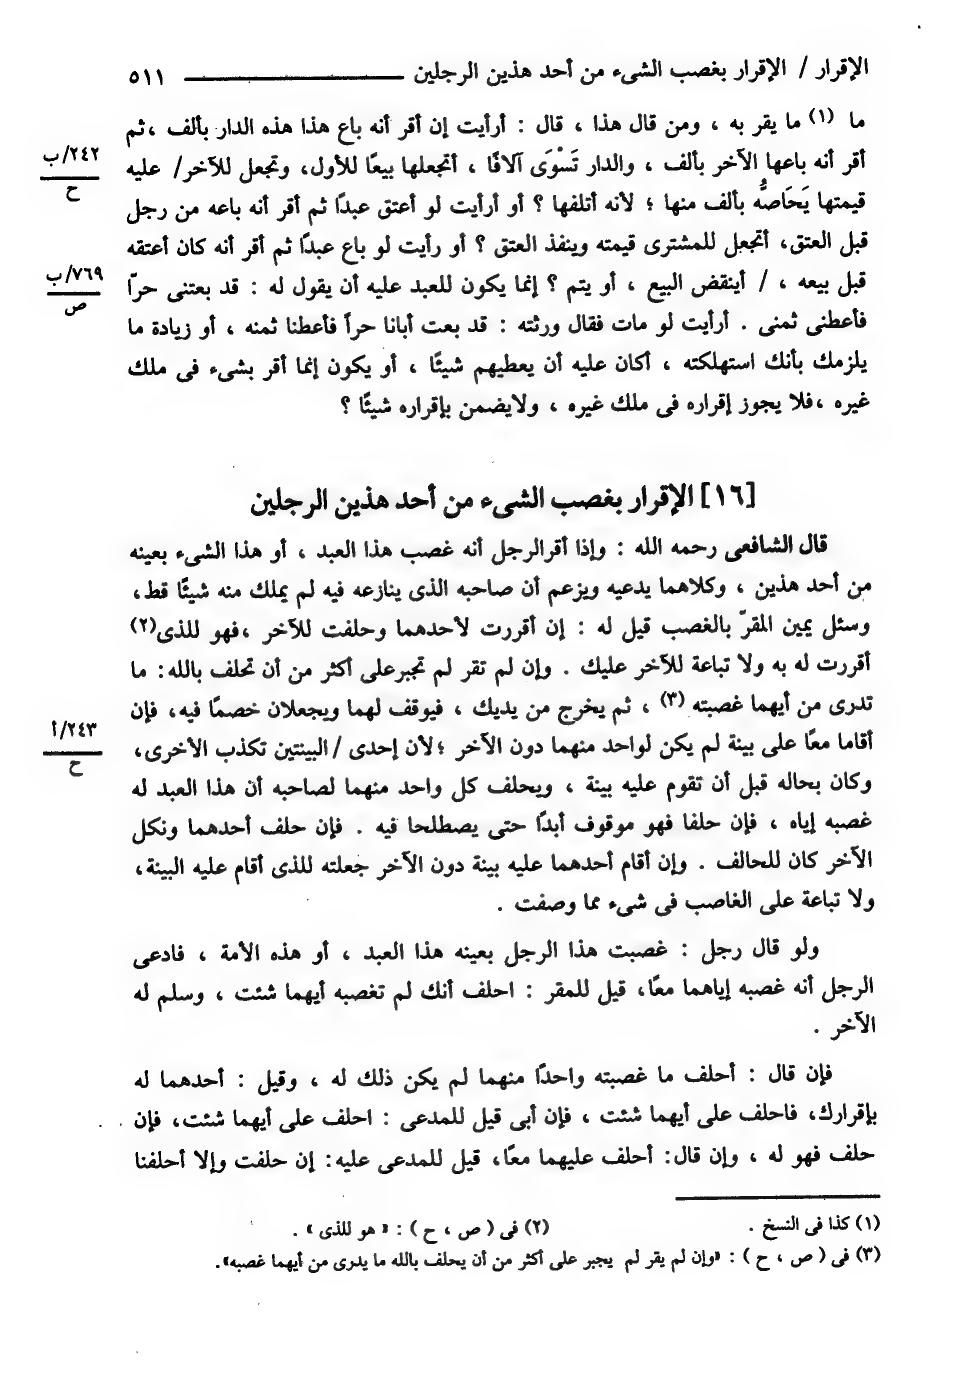 الإقرار / الإقرار بغصب الشىء من أحد هذين الرجلين ٥١١
ما (١) ما يقر به ، ومن قال هذا ، قال : أرأيت إن أقر أنه باع هذا هذه الدار بألف ،ثم
أقر أنه باعها الآخر بألف ، والدار تَسْوَى آلافًا ، أتجعلها بيعًا للأول، وتجعل للآخر/ عليه
٢٤٢/ب
ح
قيمتها يَحَاصُّه بألف منها ؛ لأنه أتلفها ؟ أو أرأيت لو أعتق عبدًا ثم أقر أنه باعه من رجل
قبل العتق، أتجعل للمشترى قيمته وينفذ العتق ؟ أو رأيت لو باع عبدًا ثم أقر أنه كان أعتقه
قبل بيعه ، / أينقض البيع ، أو يتم ؟ إنما يكون للعبد عليه أن يقول له : قد بعتنى حرّا
٧٦٩/ب
ص
فأعطنى ثمنى . أرأيت لو مات فقال ورثته : قد بعت أبانا حراً فأعطنا ثمنه ، أو زيادة ما
يلزمك بأنك استهلكته ، أكان عليه أن يعطيهم شيئًا ، أو يكون إنما أقر بشىء فى ملك
غيره ،فلا يجوز إقراره فى ملك غيره ، ولايضمن بإقراره شيئًا ؟
[١٦] الإقرار بغصب الشىء من أحد هذين الرجلين
قال الشافعى رحمه الله : وإذا أقرالرجل أنه غصب هذا العبد ، أو هذا الشىء بعينه
من أحد هذين ، وكلاهما يدعيه ويزعم أن صاحبه الذى ينازعه فيه لم يملك منه شيئًا قط،
وسئل يمين المقرّ بالغصب قيل له : إن أقررت لأحدهما وحلفت للآخر ،فهو للذى(٢)
أقررت له به ولا تباعة للآخر عليك . وإن لم تقر لم تجبرعلى أكثر من أن تحلف بالله: ما
تدرى من أيهما غصبته (٣) ، ثم يخرج من يديك ، فيوقف لهما ويجعلان خصمًا فيه، فإن
أقاما معًا على بينة لم يكن لواحد منهما دون الآخر ؛لأن إحدى /البينتين تكذب الأخرى،
٢٤٣/أ
ح
وكان بحاله قبل أن تقوم عليه بينة ، ويحلف كل واحد منهما لصاحبه أن هذا العبد له
غصبه إياه ، فإن حلفا فهو موقوف أبدًا حتى يصطلحا فيه . فإن حلف أحدهما ونكل
الآخر كان للحالف . وإن أقام أحدهما عليه بينة دون الآخر جعلته للذى أقام عليه البينة،
ولا تباعة على الغاصب فى شىء مما وصفت .
ولو قال رجل : غصبت هذا الرجل بعينه هذا العبد ، أو هذه الأمة ، فادعى
الرجل أنه غصبه إياهما معًا، قيل للمقر : احلف أنك لم تغصبه أيهما شئت ، وسلم له
الآخر .
فإن قال : أحلف ما غصبته واحدًا منهما لم يكن ذلك له ، وقيل : أحدهما له
بإقرارك، فاحلف على أيهما شئت ، فإن أبى قيل للمدعى : احلف على أيهما شئت، فإن
حلف فهو له ، وإن قال: أحلف عليهما معًا، قيل للمدعى عليه: إن حلفت وإلا أحلفنا
(١) كذا فى النسخ . (٢) فى ( ص ، ح ) : « هو للذى » .
(٣) فى ( ص ، ح ) : «وإن لم يقر لم يجبر على أكثر من أن يحلف بالله ما يدرى من أيهما غصبه».